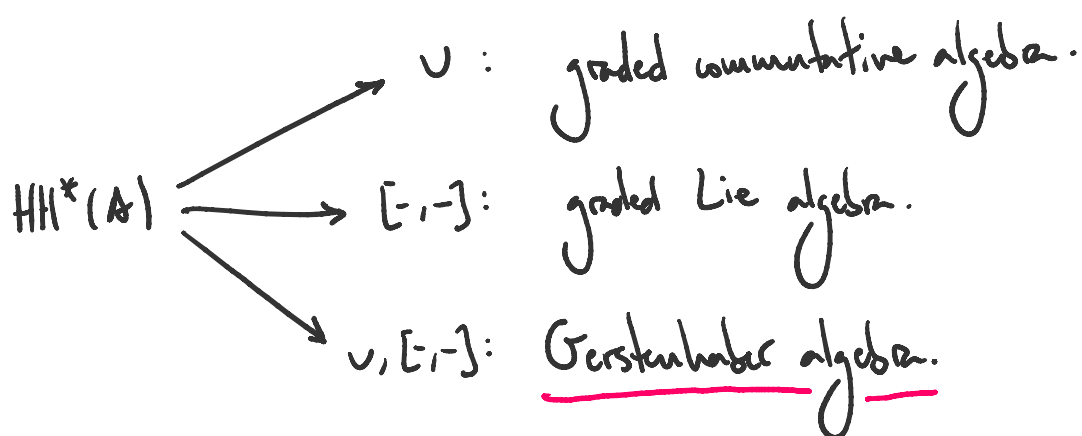 ∪ : graded commutative algebra.
HH*(A) [-,-]: graded Lie algebra.
∪, [-,-]: Gerstenhaber algebra.